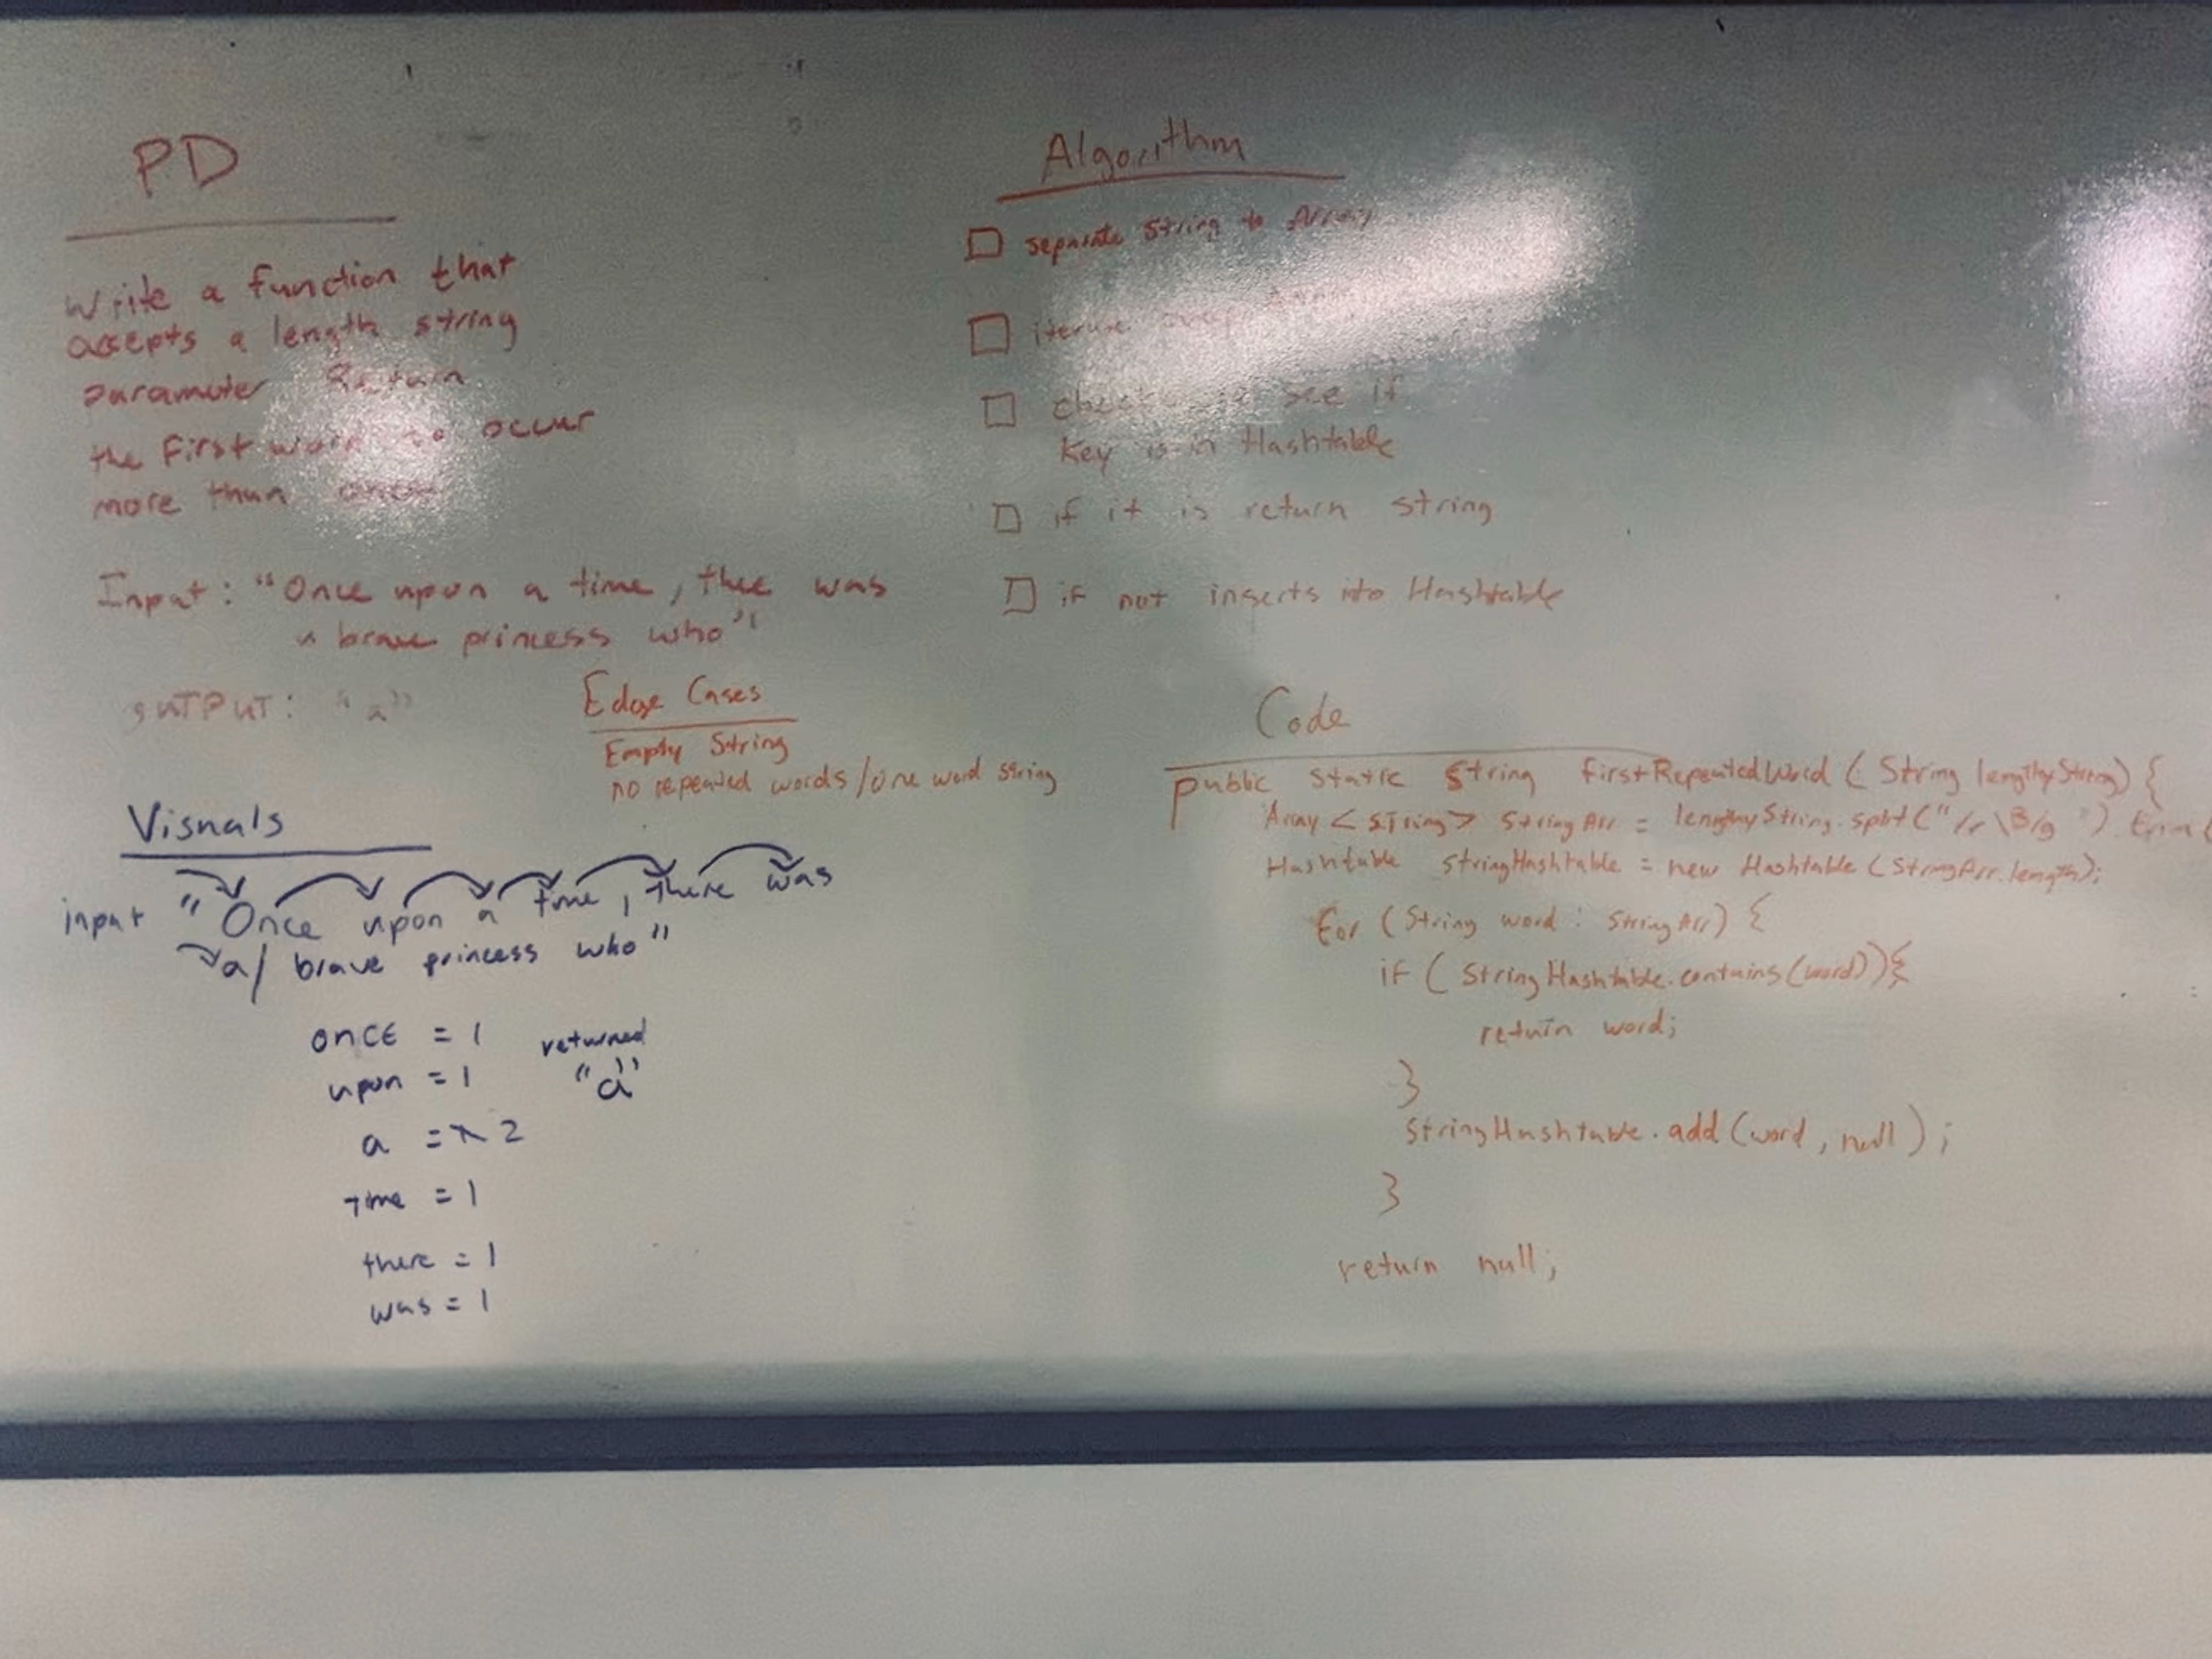 PD
Write a function that
accepts a length string
parameter Return
the first word to occur
more than once
Input: "Once upon a time, thee was
a brave princess who"
OUTPUT: "a"
Edge Cases
Empty String
no repeated words/one word string
Visuals
input "Once upon a time, there was
a/ brave princess who"
once = 1
upon = 1
a = 2
time = 1
there = 1
was = 1
returned
"a"
Algorithm
separate String to Array
iterate over Array
check to see if
Key is in Hashtable
if it is return string
if not inserts into Hashtable
Code
public static String firstRepeatedWord (String lengthyString) {
Array<String> StringArr = lengthyString.split("
Hashtable stringHashtable = new Hashtable (StringArr.length);
for (String word : StringArr) {
if (StringHashtable.contains(word)){
return word;
}
StringHashtable.add(word, null);
}
return null;